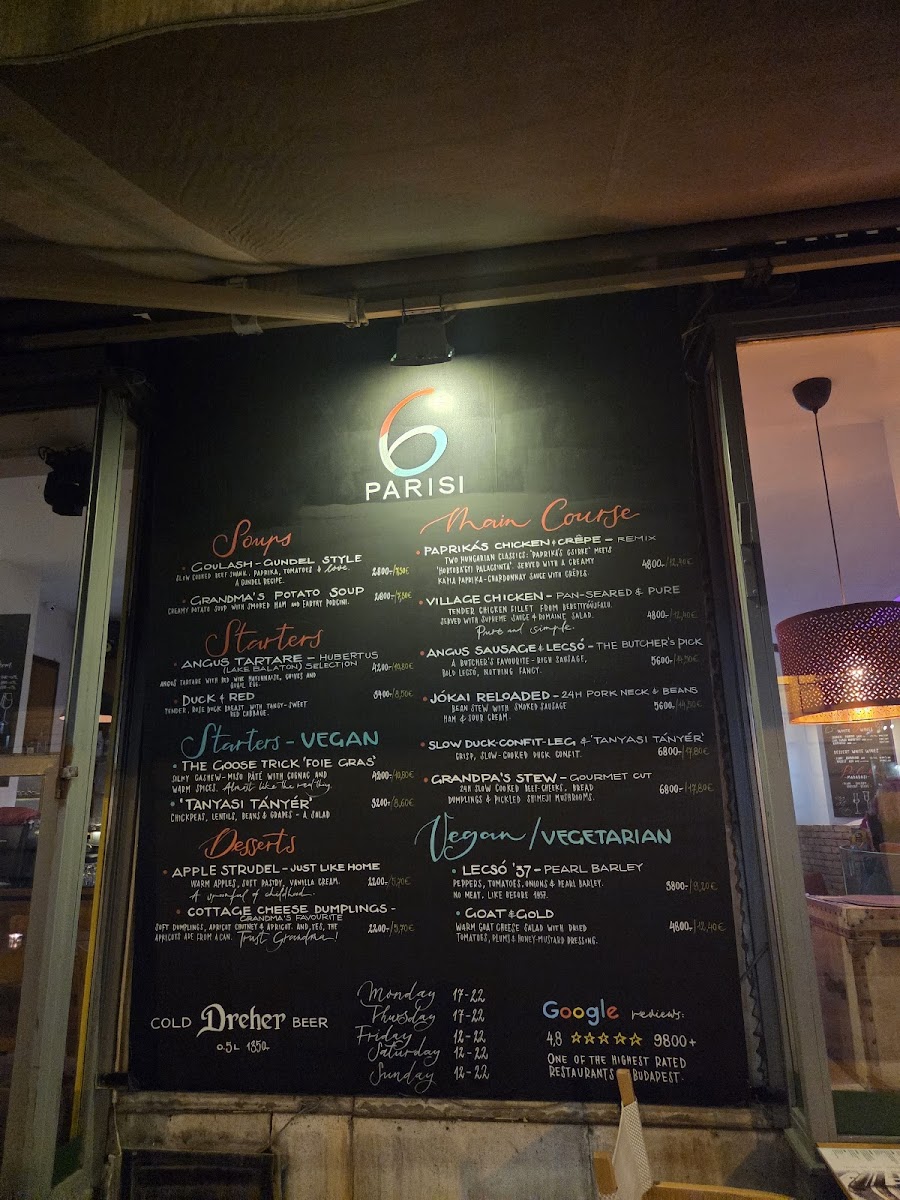 6
PARISI
Soups
• GOULASH - GUNDEL STYLE
SLOW COOKED BEEF SHANK, PAPRIKA, TOMATOES & love.
A GUNDEL RECIPE.
2800.-/7,30€
• GRANDMA'S POTATO SOUP
CREAMY POTATO SOUP WITH SMOKED HAM AND PORCINI.
2800.-/7,30€
Starters
• ANGUS TARTARE - HUBERTUS
(LAKE BALATON) SELECTION
ANGUS TARTARE WITH RED WINE MAYONNAISE, CHIVES AND
4200.-/10,80€
• DUCK & RED
TENDER, ROSÉ DUCK BREAST WITH TANGY-SWEET
RED CABBAGE.
/8,50€
Starters - VEGAN
• THE GOOSE TRICK 'FOIE GRAS'
SILKY CASHEW-MISO PÂTÉ WITH COGNAC AND
WARM SPICES. Almost like the real thing.
4200.-/10,80€
• 'TANYASI TÁNYÉR'
CHICKPEAS, LENTILS, BEANS & GRAPES - A SALAD
3200.-/8,60€
Desserts
• APPLE STRUDEL - JUST LIKE HOME
WARM APPLES, SOFT PASTRY, VANILLA CREAM.
A spoonful of childhood.
2200.-/5,70€
• COTTAGE CHEESE DUMPLINGS -
GRANDMA'S FAVOURITE
SOFT DUMPLINGS, APRICOT CHUTNEY & APRICOT. AND YES, THE
APRICOTS ARE FROM A CAN. Trust Grandma!
2200.-/5,70€
Main Course
• PAPRIKÁS CHICKEN & CRÊPE - REMIX
TWO HUNGARIAN CLASSICS: 'PAPRIKÁS CSIRKE' MEETS
'HORTOBÁGYI PALACSINTA'. SERVED WITH A CREAMY
KAPIA PAPRIKA-CHARDONNAY SAUCE WITH CRÊPES.
4800.-/12,40€
• VILLAGE CHICKEN - PAN-SEARED & PURE
TENDER CHICKEN FILLET FROM BERETTYÓÚJFALU.
SERVED WITH SUPREME SAUCE & ROMAINE SALAD.
Pure and simple.
4800.-/12,40€
• ANGUS SAUSAGE & LECSÓ - THE BUTCHER'S PICK
A BUTCHER'S FAVOURITE - RICH SAUSAGE,
BOLD LECSÓ, NOTHING FANCY.
5600.-/14,50€
• JÓKAI RELOADED - 24H PORK NECK & BEANS
BEAN STEW WITH SMOKED SAUSAGE
HAM & SOUR CREAM.
5600.-/14,50€
• SLOW DUCK-CONFIT-LEG & 'TANYASI TÁNYÉR'
CRISP, SLOW-COOKED DUCK CONFIT.
6800.-/17,80€
• GRANDPA'S STEW - GOURMET CUT
24H SLOW COOKED BEEF-CHEEKS, BREAD
DUMPLINGS & PICKLED SHIMEJI MUSHROOMS.
6800.-/17,80€
Vegan/VEGETARIAN
• LECSÓ '57 - PEARL BARLEY
PEPPERS, TOMATOES, ONIONS & PEARL BARLEY.
NO MEAT, LIKE BEFORE 1957.
3800.-/9,20€
• GOAT & GOLD
WARM GOAT CHEESE SALAD WITH DRIED
TOMATOES, PLUMS & HONEY-MUSTARD DRESSING.
4800.-/12,40€
COLD Dreher BEER
0.5L 1350.-
Monday 17-22
Thursday 17-22
Friday 12-22
Saturday 12-22
Sunday 12-22
Google reviews:
4,8 ☆☆☆☆☆ 9800+
ONE OF THE HIGHEST RATED
RESTAURANTS BUDAPEST.